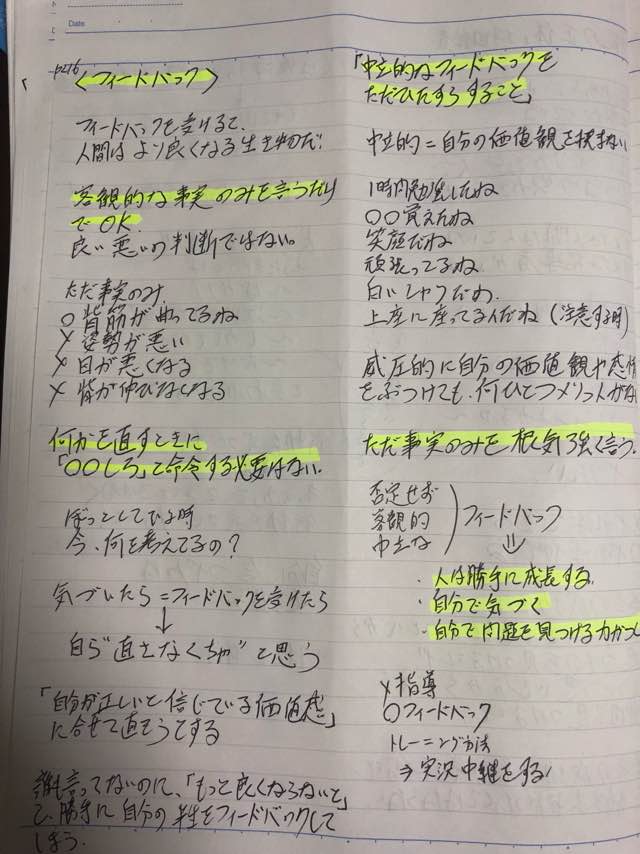 Date
P216
〈フィードバック〉
フィードバックを受けると、
人間はより良くなる生き物だ!
客観的な事実のみを言うだけ
でOK.
良い悪いの判断ではない。
ただ事実のみ
○ 背筋が曲ってるね
× 姿勢が悪い
× 目が悪くなる
× 背が伸びなくなる
何かを直すときに
「○○しろ」と命令する必要はない.
ぼっとしてひよ時
今、何を考えてるの?
気づいたら=フィードバックを受けたら
↓
自ら"直さなくちゃ"と思う
「自分が正しいと信じている価値感」
に合せて直そうとする
誰も言ってないのに、「もっと良くならないと」
と、勝手に自分の
をフィードバックして
しまう.
「中立的なフィードバックを
ただひたすらすること」
中立的=自分の価値観を挟まない
1時間勉強したね
○○覚えたね
笑顔だね
頑張ってるね
白いシャツだね
上座に座ってるんだね(注意する時)
威圧的に自分の価値観や感情
をぶつけても、何ひとつメリットがない
ただ事実のみを根気強く言う.
否定せず
客観的
中立な
フィードバック
⇓
・人は勝手に成長する
・自分で気づく
・自分で問題を見つける力がつく
×指導
○フィードバック
トレーニング方法
⇒実況中継をする